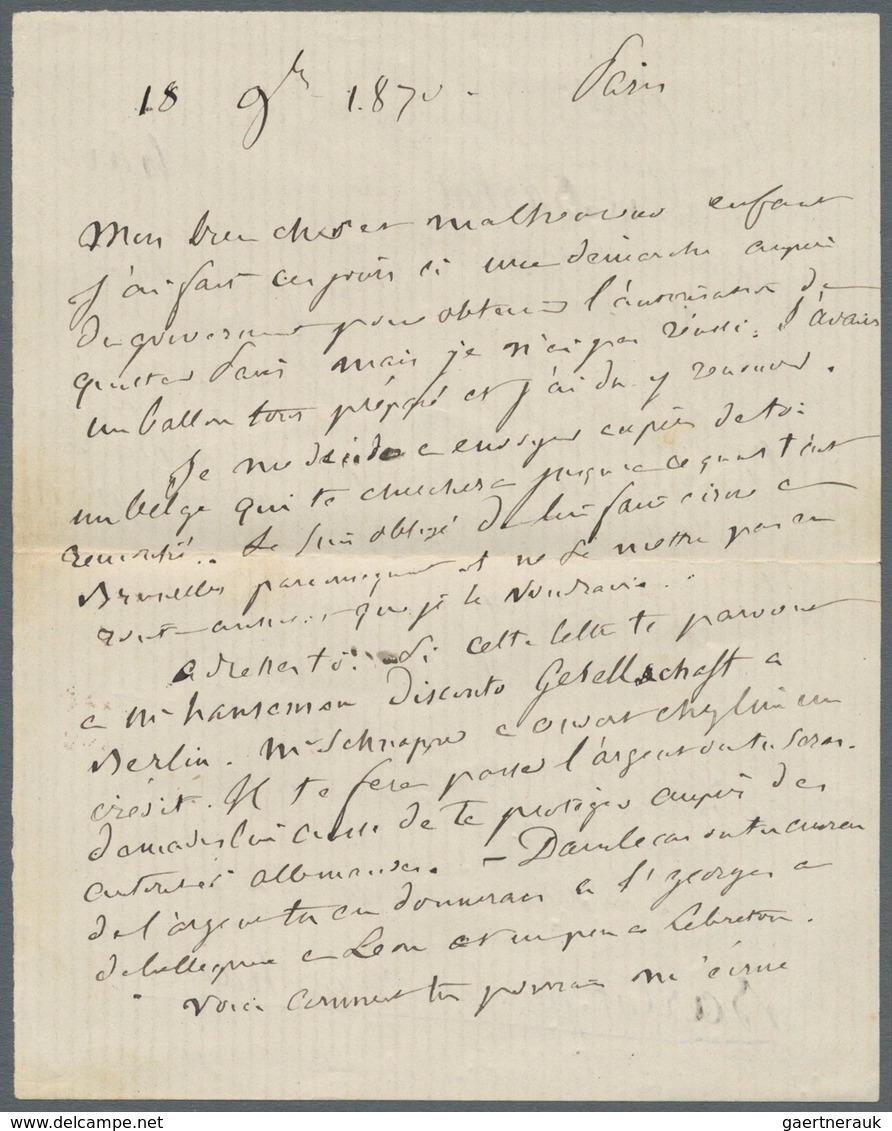 18 9bre 1870 - Paris
Mon bien cher et malheureux enfant
J'ai fait ces jours ci une démarche auprès
du gouvernement pour obtenir l'autorisation de
quitter Paris mais je n'ai pas réussi. J'avais
un ballon tout préparé et j'ai du y renoncer.
Je me décide a envoyer auprès de toi
un belge qui te cherchera jusqu'a ce qu'il t'ait
rencontré.. Je suis obligé de lui faire écrire a
Bruxelles par conséquent et ne se mettra pas en
route aussi que je le voudrais..
adresse toi si cette lettre te parvient
a Mr hanseman Disconto Gesellschaft a
Berlin. Mr Schnapper a ouvert chez lui un
crédit. Il te fera passer l'argent dont tu seras.
demandes lui aussi de te protéger auprès des
autorités allemandes. - Dans le cas ou tu aurais
de l'argent tu en donnerais a St georges a
a Leon et un peu a Lebreton.
Voici comment tu pourrais m'écrire
gaertnerauk